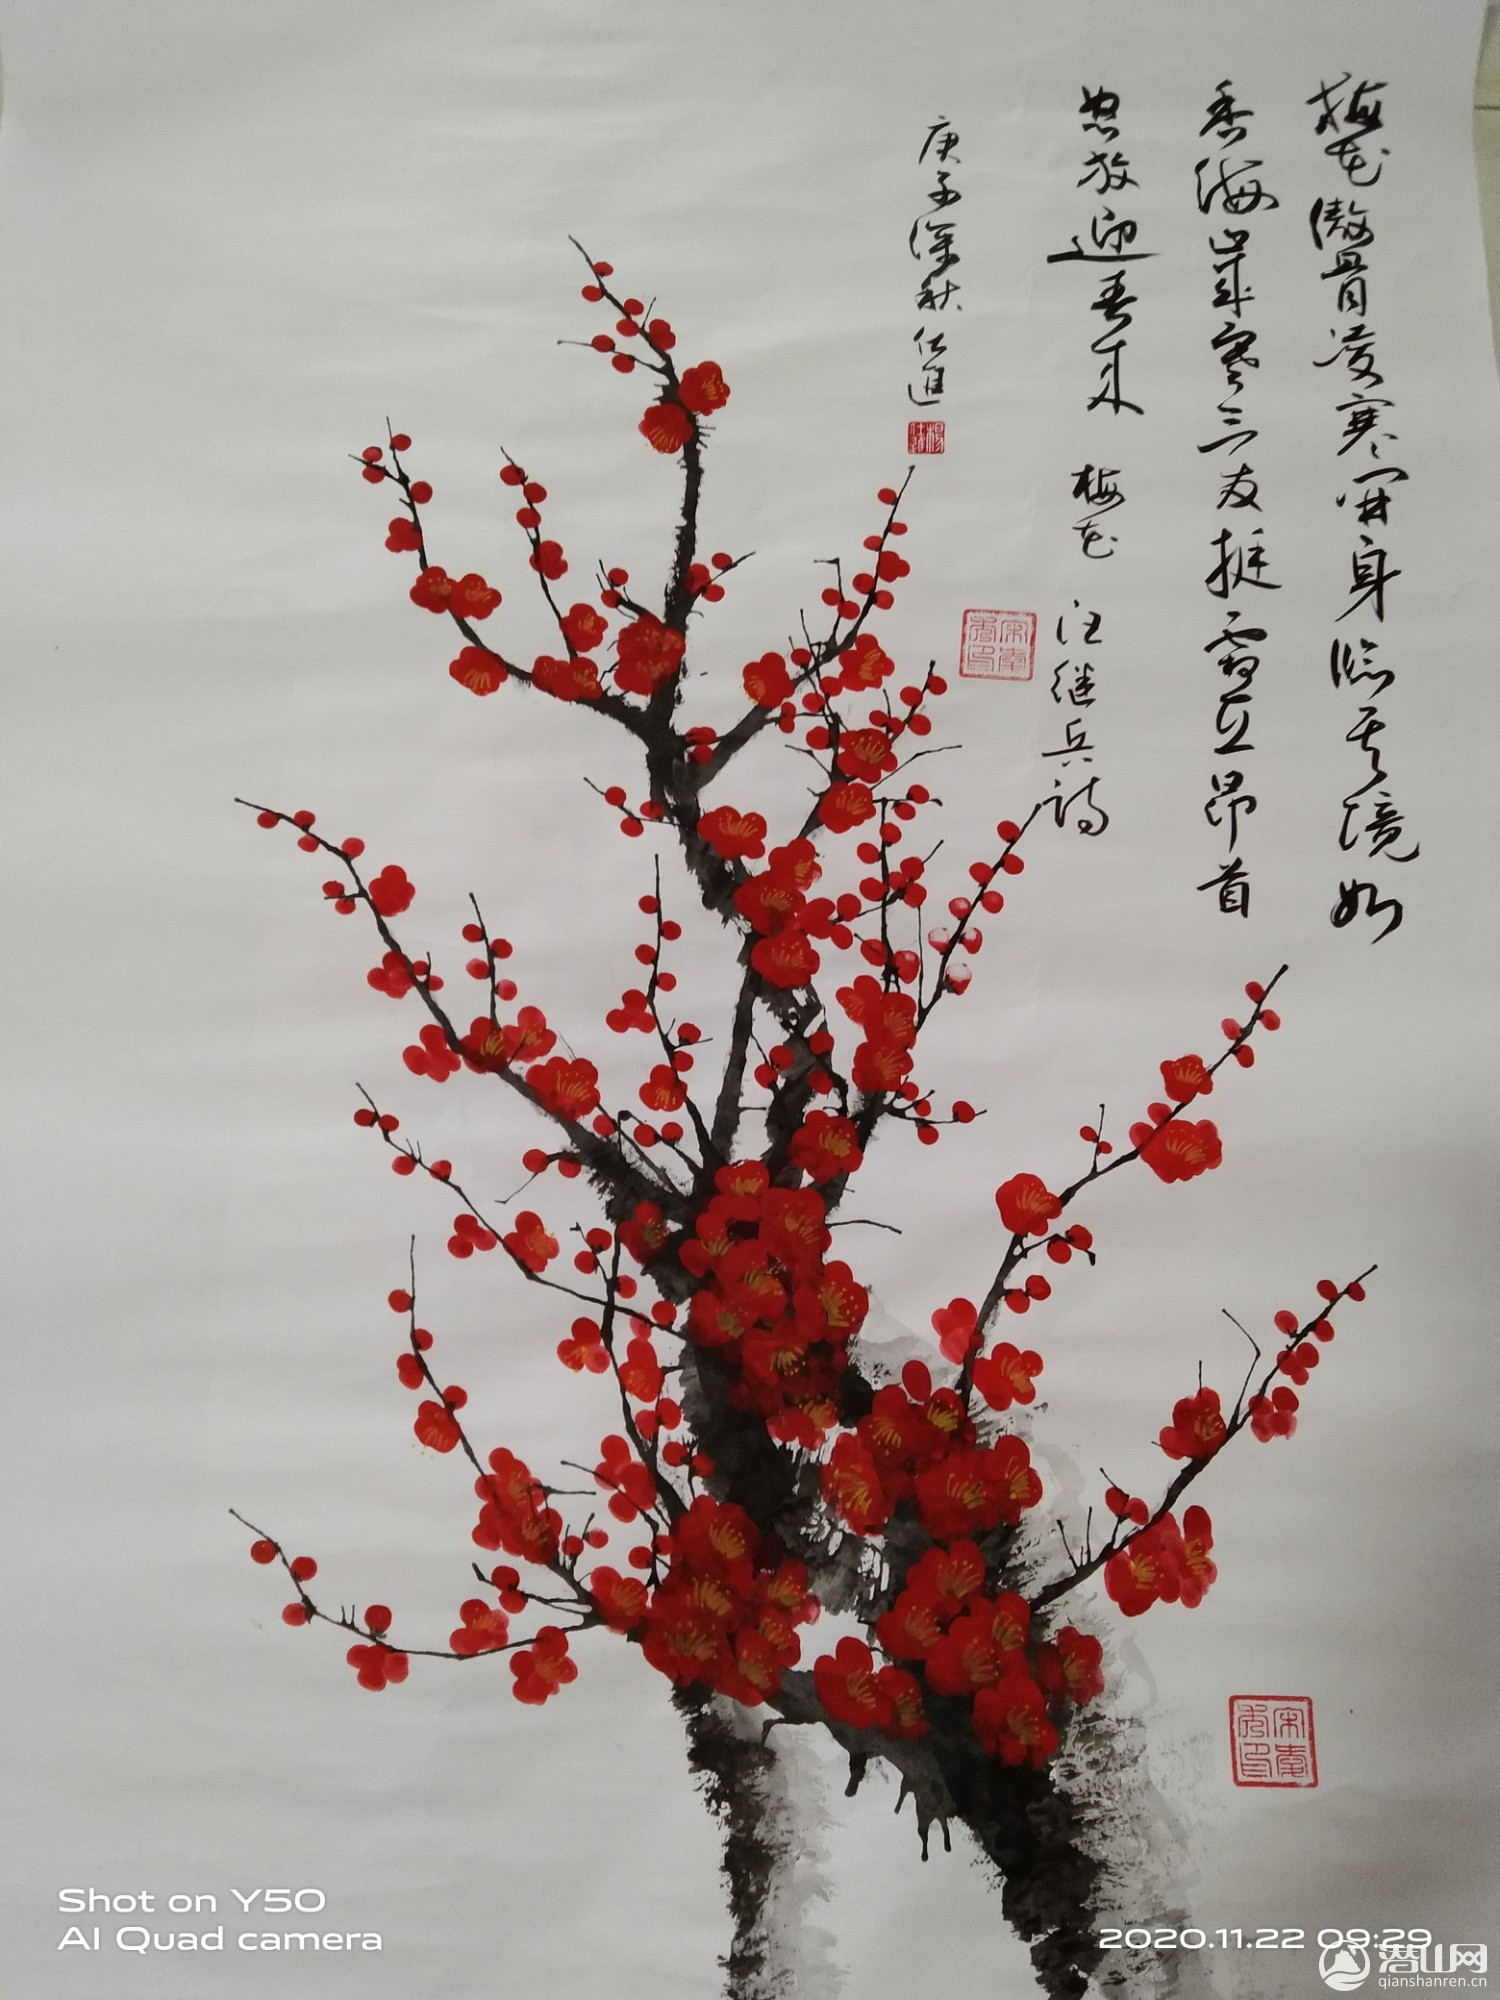 梅花傲骨凌寒开身临其境如
香海岁寒三友挺雪立昂首
怒放迎春来 梅花 汪继兵诗
庚子深秋仕进
杨仕进
Shot on Y50
AI Quad camera
2020.11.22 09:29
潜山网
qianshanren.cn